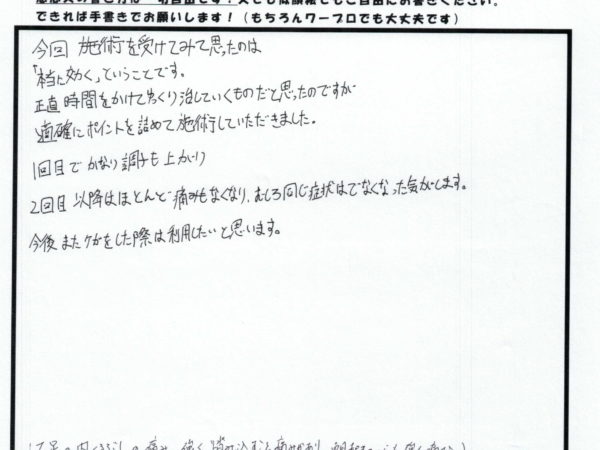 できれば手書きでお願いします！（もちろんワープロでも大丈夫です）
今回 施術を受けてみて思ったのは
「本当に効く」ということです。
正直 時間をかけてゆっくり治していくものだと思ったのですが
適確にポイントを詰めて施術していただきました。
1回目でかなり調子も上がり
2回目以降はほとんど痛みもなくなり、むしろ同じ症状はでなくなった気がします。
今後またケガをした際は利用したいと思います。